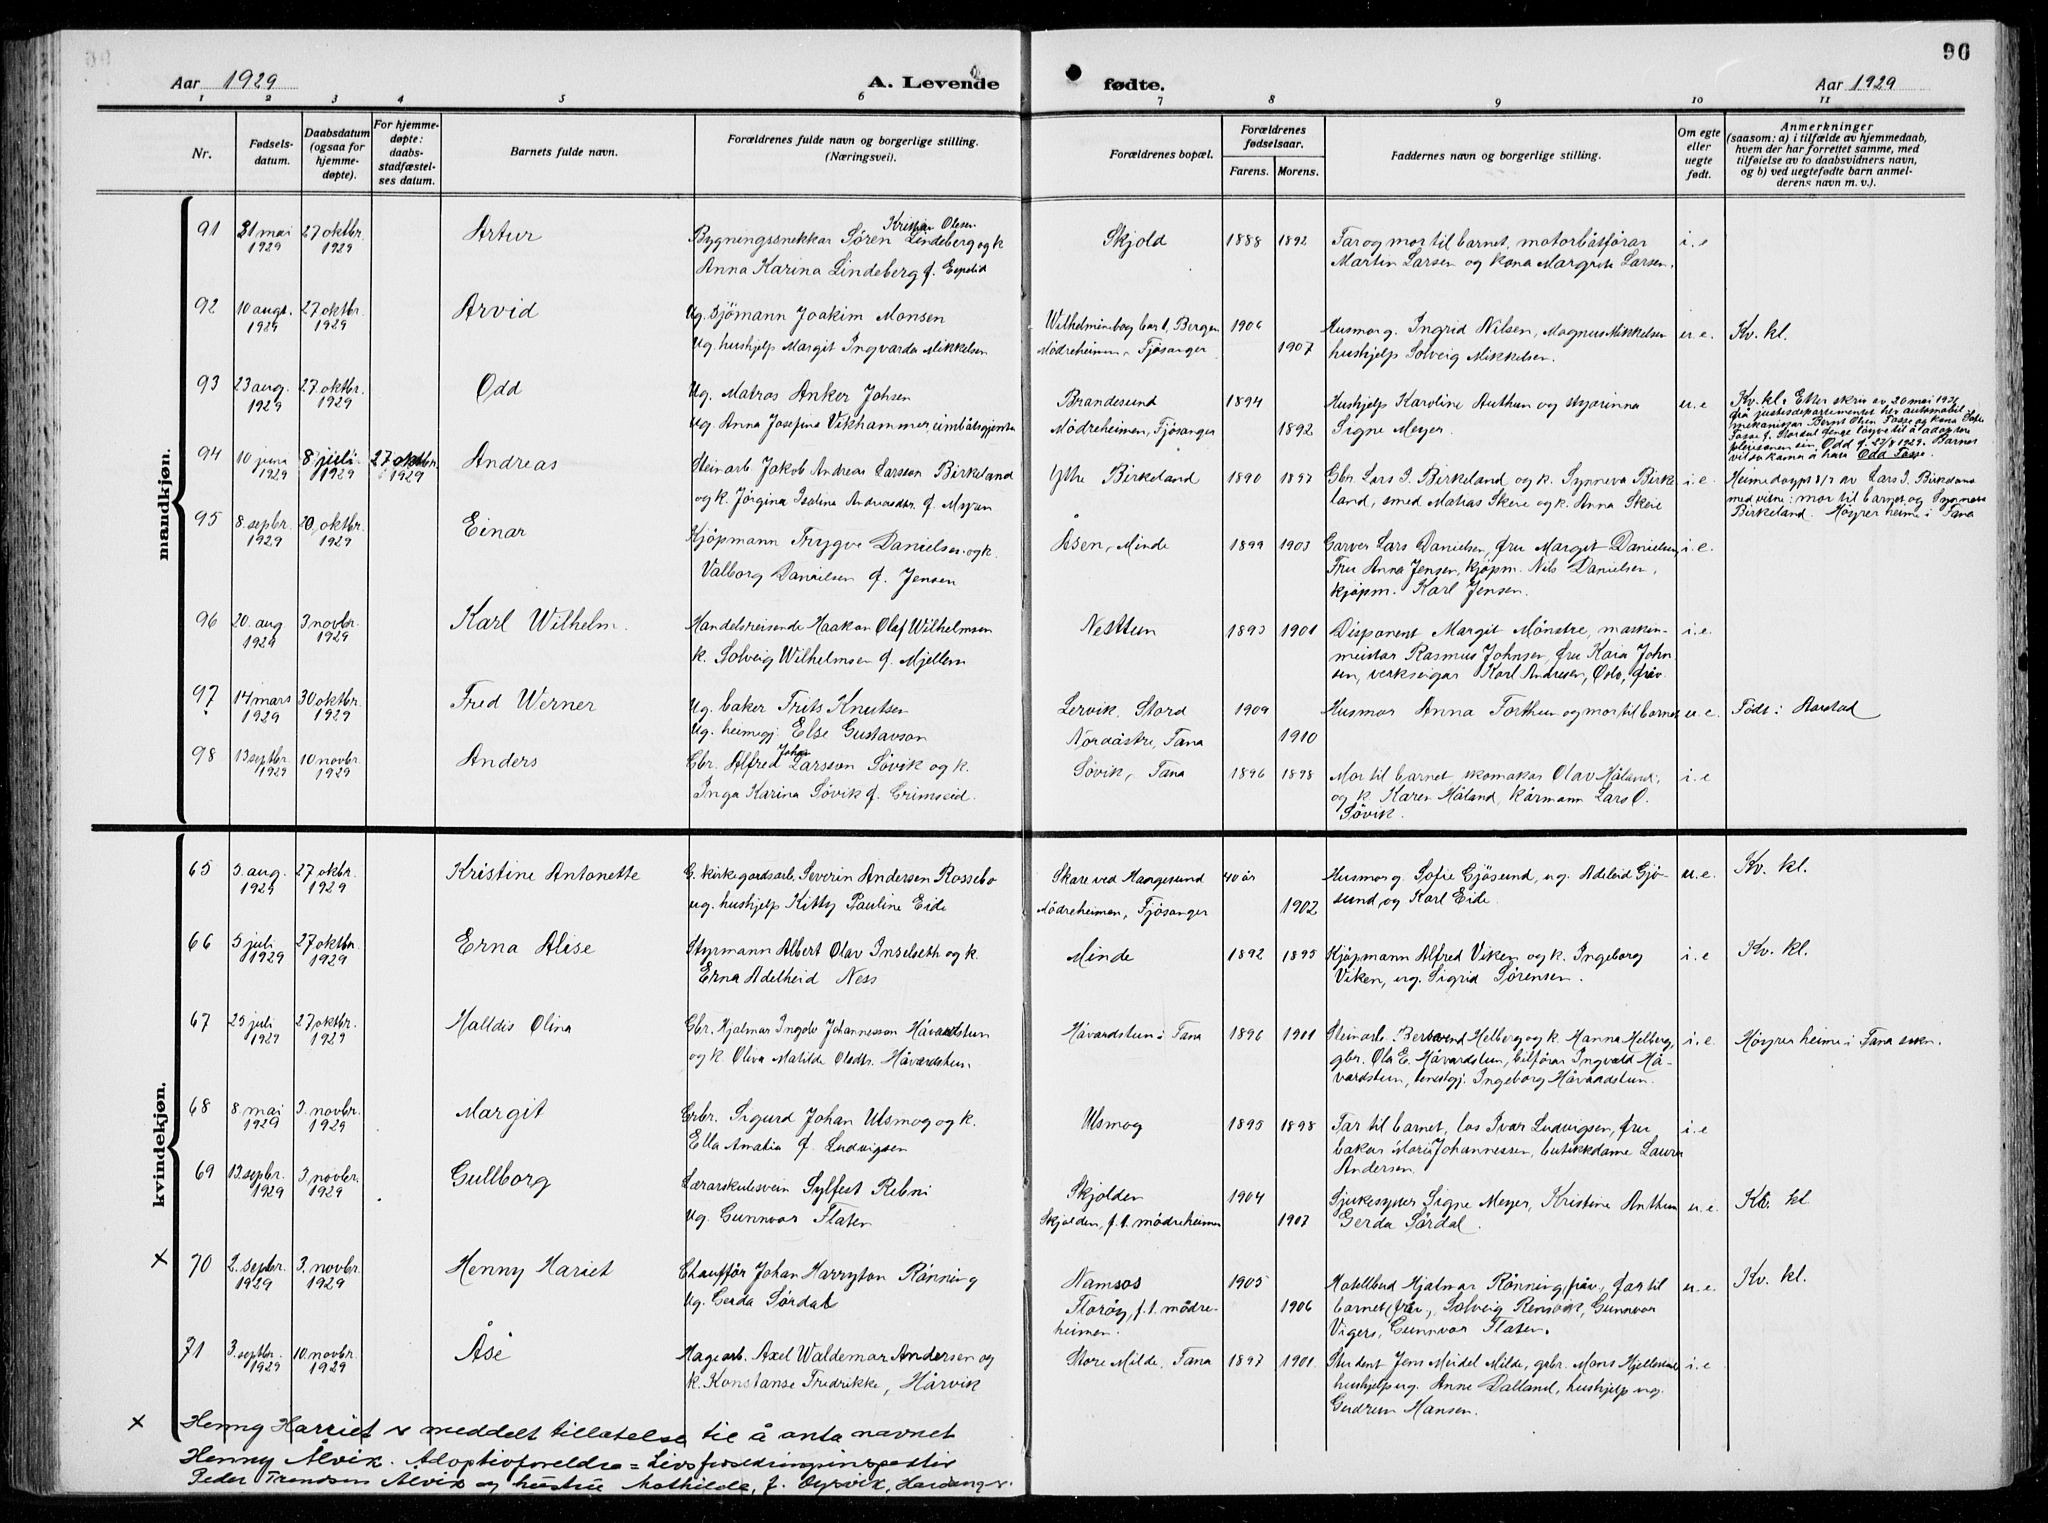 96
Aar 1929
A. Levende
fødte.
Aar 1929
1 2 3 4 5 6 7 8 9 10 11
Nr.
Fødsels-
datum.
Daabsdatum
(ogsaa for
hjemme-
døpte).
For hjemme-
døpte:
daabs-
stadfæstel-
ses datum.
Barnets fulde navn.
Forældrenes fulde navn og borgerlige stilling.
(Næringsvei).
Forældrenes bopæl.
Forældrenes
fødselsaar.
Farens. Morens.
Faddernes navn og borgerlige stilling.
Om egte
eller
uegte
født.
Anmerkninger
(saasom: a) i tilfælde av hjemmedaab,
hvem der har forrettet samme, med
tilføielse av to daabsvidners navn,
og b) ved uegtefødte barn anmel-
derens navn m. v.).
mandkjøn.
91 31 mai 1929 27 oktbr. 1929 Artur
Bygningssnekkar Søren Kristian Olesen Lindeberg og k
Anna Karina Lindeberg f. Espelid
Skjold 1888 1892
Far og mor til barnet, motorbåtförar
Martin Larsen og kona Margrete Larsen.
i.e
92 10 augs. 1929 27 oktbr. 1929 Arvid
Ug. Sjömann Joakim Monsen
Ug. hushjelp Margit Ingvarda Mikkelsen
Wilhelmineborg bar 1, Bergen 1906
Mødreheimen, Fjösanger 1907
Husmor g. Ingrid Nilsen, Magnus Mikkelsen
hushjelp Solveig Mikkelsen.
u.e. Kv. kl.
93 23 aug. 1929 27. oktbr. 1929 Odd
Ug. Matros Anker Johsen
Ug. Anna Josefina Vikhammer,
Brandesund 1894
Mødreheimen, Fjösanger 1892
Hushjelp Karoline Authun og
Signe Meyer.
u.e
Kv. kl. Etter skriv av 20 mai 1931
frå justisdepartementet hev automobil
mekanikar Bernt Olsen Fosse og kona
Fosse f. Stordal fenge löyve til å adoptere
Odd f. 23/8 1929. Barnet
vil so koma å heta Odd Fosse.
94 10 juni 1929 8 juli. 1929 27 oktbr. 1929 Andreas
Steinarb. Jakob Andreas Larsson Birkeland
og k. Jörgina Isaline Andreasdtr. f. Myran
Ytre Birkeland 1890 1897
Gbr. Lars J. Birkeland og k. Synneva Birk
land, smed Matias Skeie og k. Anna Skeie
i.e.
Heimedøypt 8/7 av Lars J. Birkeland
med vitne: mor til barnet og Synneva
Birkeland. Høyrer heime i Fana
95 8. sepbr. 1929 20. oktbr. 1929 Einar
Kjöpmann Trygve Danielsen og k.
Valborg Danielsen f. Jensen
Åsen, Minde 1899 1903
Garver Lars Danielsen, fru Margit Danielsen
Fru Anna Jensen, kjöpm. Nils Danielsen,
kjöpm. Karl Jensen.
i.e.
96 20. aug 1929 3 novbr. 1929 Karl Wilhelm.
Handelsreisende Haakon Olaf Wilhelmsen
k. Solveig Wilhelmsen f. Mjellem
Nesttun 1893 1901
Disponent Margit Mönstre, maskin-
meistar Rasmus Johnsen, fru Kaia John-
sen, verkseigar Karl Andresen, Oslo, fråv.
i.e.
97 14 mars 1929 30 oktbr. 1929 Fred Werner
Ug. baker Frits Knutsen
Ug. heimegj. Else Gustavson
Lervik, Stord 1909
Nordåstre, Fana 1910
Husmor Anna Forthun og mor til barnet
u.e. Födt i Aarstad
98 13 septbr. 1929 10 novbr. 1929 Anders
Gbr. Alfred Johan Larsson Søvik og k.
Inga Karina Søvik f. Grimseid.
Søvik, Fana 1896 1898
Mor til barnet, skomakar Olav Håland,
og k. Karen Håland, körmann Lars O.
Søvik.
i.e
kvindekjøn.
65 5. aug. 1929 27 oktbr. 1929 Kristine Antonette
G. kirkegardsarb. Severin Andersen Rossebo
ug. hushjelp Kitty Pauline Eide
Skare ved Haugesund 40 år
Mödreheimen, Fjösanger 1902
Husmor g. Sofie Gjösund, ug. Adeleid Gjö-
sund, og Karl Eide.
u.e. Kv. kl.
66 5 juli 1929 27 oktbr. 1929 Erna Alise
Styrmann Albert Olav Inselseth og k.
Erna Adelheid Ness
Minde 1892 1895
Kjöpmann Alfred Viken og k. Ingeborg
Viken, ug. Sigrid Sørensen.
i.e Kv. kl.
67 25 juli 1929 27 oktbr. 1929 Malldis Olina
Gbr. Hjalmar Ingolv Johannesson Håvardstun
og k. Oliva Matilde Olsdtr. Håvardstun.
Håvardstun i Fana 1896 1901
Steinarb. Helberg og k. Hanna Helberg,
gbr. Ola E. Håvardstun, bilförar Ingvald Hå-
vardstun, tenestgj. Ingeborg Håvardstun.
i.e. Høyrer heime i Fana sokn.
68 8. mai 1929 3. novbr. 1929 Margit
Grbr. Sigurd Johan Ulsmog og k.
Ella Amalia f. Ludvigsen
Ulsmog 1895 1898
Far til barnet, los Ivar Ludvigsen, fru
bakar Marie Johannessen, butikkdame Laura
Andersen.
i.e
69 13. sepbr. 1929 3. novbr. 1929 Gullborg
Lærarskulesvein Sylfest Rebni
Ug. Gunnvor Flaten
Skjolden 1904
Skjolden, f.t. mödreheimen 1907
Sjukesyster Signe Meyer, Kristine Anthun
Gerda Sørdal.
u.e. Kv. kl.
x 70 2. sepbr. 1929 3. novbr. 1929 Henny Hariet
Chaufför Johan Harryton Rönning
Ug. Gerda Sørdal
Namsos 1905
Florøy, f.t. mödre-
heimen. 1906
Hotellbud Hjalmar Rönning fråv, far til
barnet, fråv, Solveig Gunnvor
Vigers, Gunnvor Flaten.
u.e. Kv. kl.
71 3. septbr. 1929 10. novbr. 1929 Åse
Hagearb. Axel Waldemar Andersen og
k. Konstanse Fredrikke, Hårvik
Store Milde, Fana 1897 1901
Student Jens Meidel Milde, grbr. Mons Hjellestad
hushjelp ug. Anne Dalland, hushjelp ug.
Gudrun Hansen.
i.e
x Henny Harriet er meddelt tillatelse til å anta navnet
Henny Ålvik. Adoptivforeldre = Livsforsikringsinspektör
Peder Trondsen Ålvik og hustru Mathilde, f. Oysvik, Hardanger.